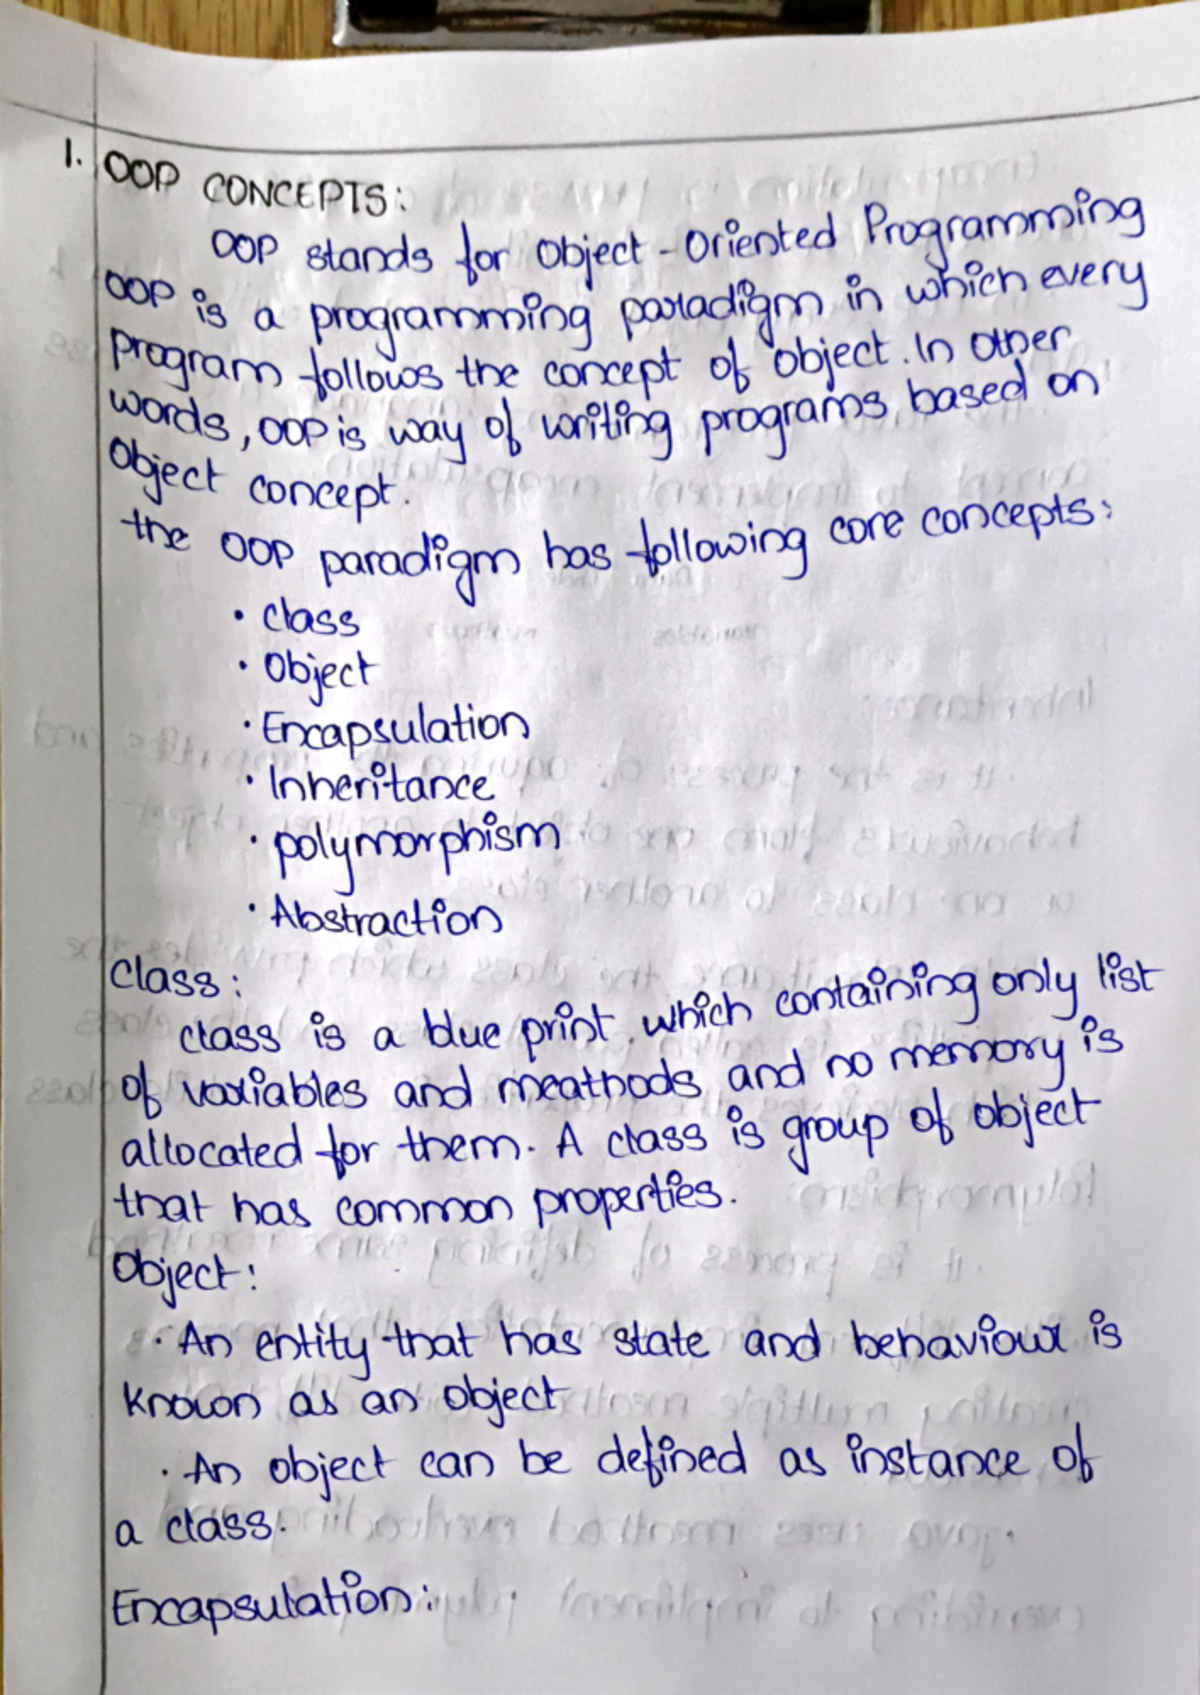 1. OOP CONCEPTS:
OOP stands for Object-Oriented Programming
OOP is a programming paradigm in which every
program follows the concept of object. In other
words, OOP is way of writing programs based on
Object concept.
the OOP paradigm has following core concepts:
• class
• Object
• Encapsulation
• Inheritance
• polymorphism
• Abstraction
Class:
class is a blue print which containing only list
of variables and meathods and no memory is
allocated for them. A class is group of object
that has common properties.
Object:
• An entity that has state and behaviour is
known as an object
• An object can be defined as instance of
a class.
Encapsulation: